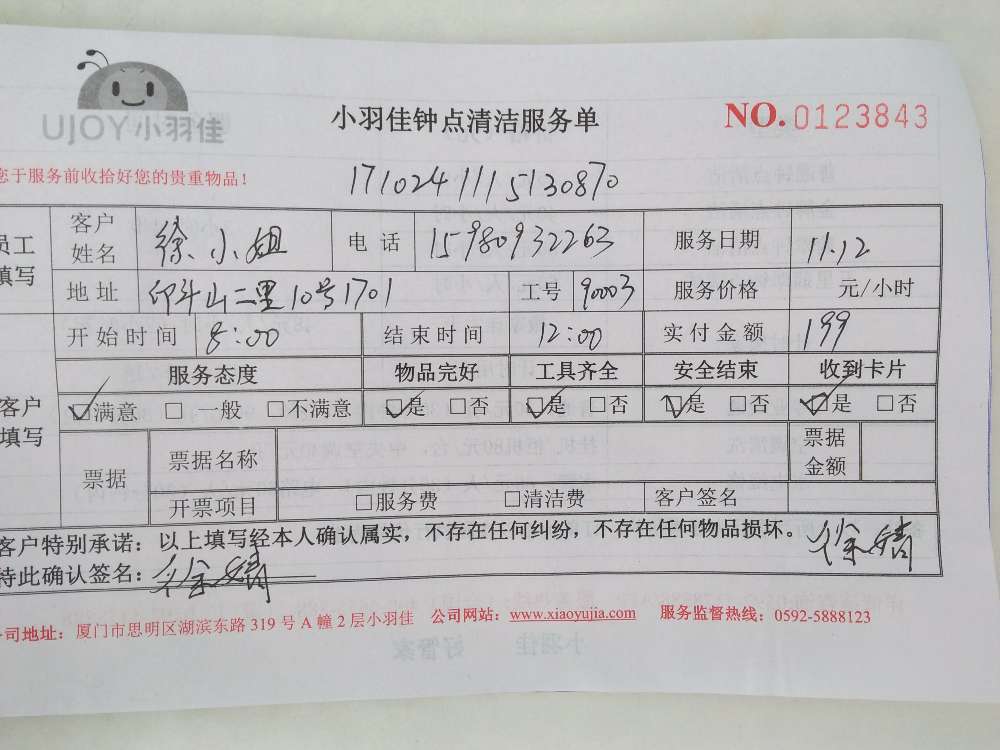 UJOY小羽佳
小羽佳钟点清洁服务单
NO.0123843
您于服务前收拾好您的贵重物品！
1710241115130870
员工填写 客户姓名 徐小姐 电话 15980932263 服务日期 11.12
地址 印斗山二里10号1701 工号 90003 服务价格 元/小时
开始时间 8:00 结束时间 12:00 实付金额 199
客户填写 服务态度 物品完好 工具齐全 安全结束 收到卡片
☑满意 □一般 □不满意 ☑是 □否 ☑是 □否 ☑是 □否 ☑是 □否
票据 票据名称 票据金额
开票项目 □服务费 □清洁费 客户签名
客户特别承诺：以上填写经本人确认属实，不存在任何纠纷，不存在任何物品损坏。 徐婧
特此确认签名：徐婧
公司地址：厦门市思明区湖滨东路 319 号 A 幢 2 层小羽佳 公司网站：www.xiaoyujia.com 服务监督热线：0592-5888123